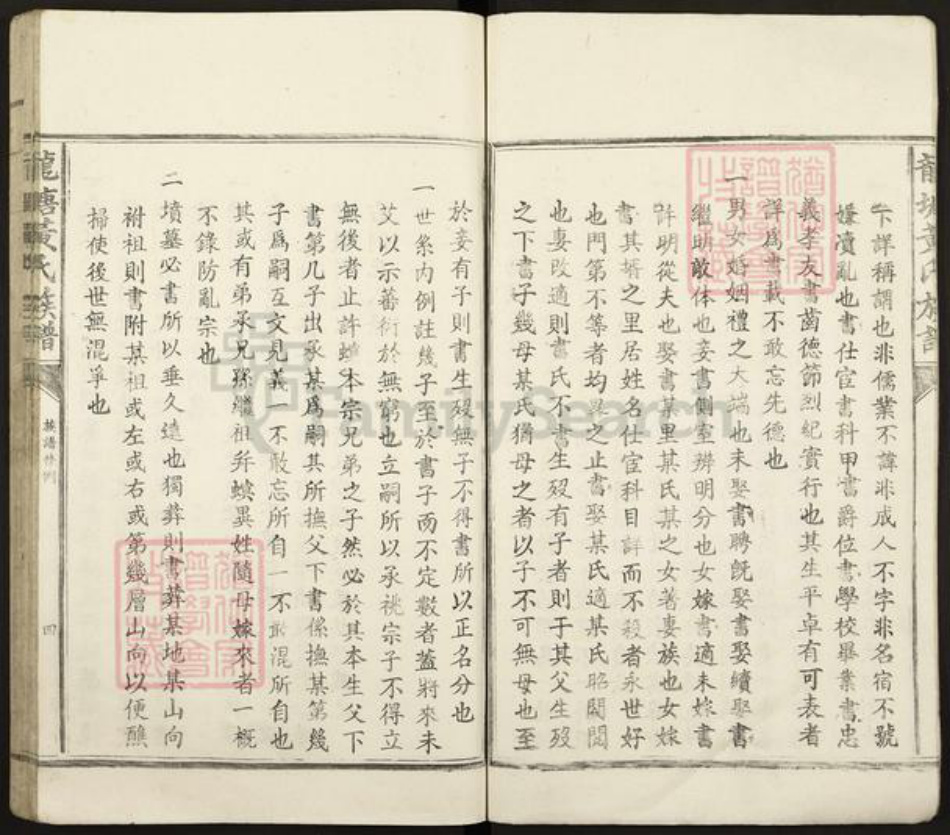 下詳稱謂也非儒業不諱非成人不字非名宿不號
嫌瀆亂也書仕宦書科甲書爵位書學校畢業書忠
義孝友書齒德節烈紀實行也其生平卓有可表者
詳爲書載不敢忘先德也
一男女婚姻禮之大端也未娶書聘旣娶書娶續娶書
繼明敵体也妾書側室辨明分也女嫁書適未嫁書
許明從夫也娶書某里某氏某之女著妻族也女嫁
書其壻之里居姓名仕宦科目詳而不殺者永世好
也門第不等者均畧之止書娶某氏適某氏昭閥閱
也妻改適則書氏不書生歿有子者則于其父生歿
之下書子幾母某氏猶母之者以子不可無母也至
於妾有子則書生歿無子不得書所以正名分也
一世系內例註幾子至於書子而不定數者蓋將來未
艾以示蕃衍於無窮也立嗣所以承祧宗子不得立
無後者止許螟本宗兄弟之子然必於其本生父下
書第几子出承某爲嗣其所撫父下書係撫某第幾
子爲嗣互文見義一不敢忘所自一不敢混所自也
其或有弟承兄孫繼祖并螟異姓隨母嫁來者一概
不錄防亂宗也
二墳墓必書所以垂久遠也獨葬則書葬某地某山向
祔祖則書附某祖或左或右或第幾層山向以便醮
掃使後世無混爭也
龍塘黄氏族譜
族譜凡例
四
FamilySearch